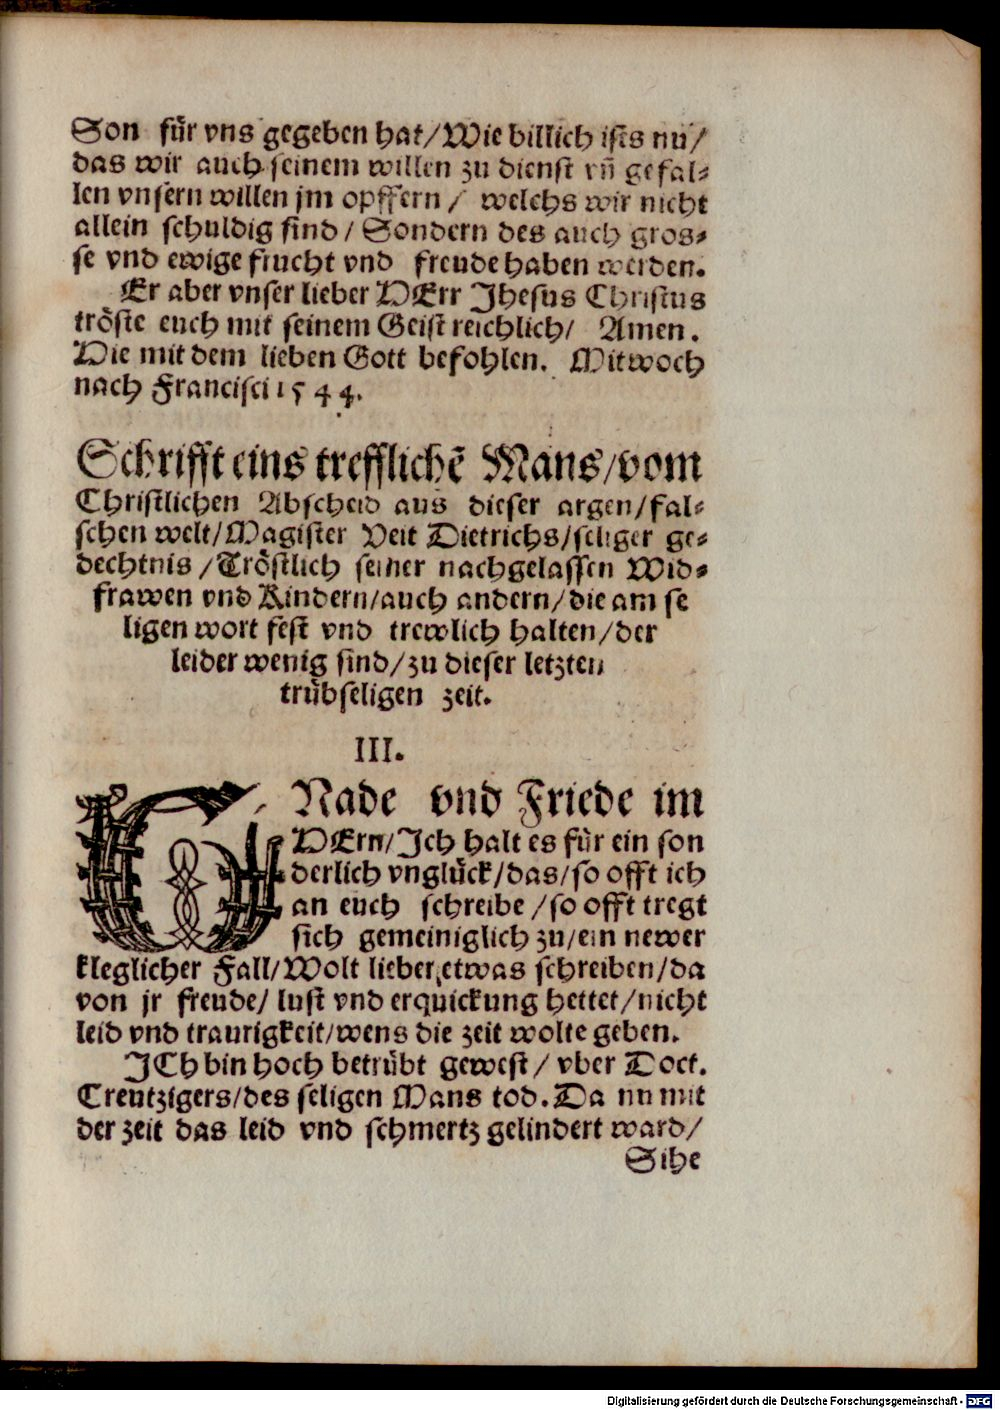 Son für vns gegeben hat/Wie billich ists nu/
das wir auch seinem willen zu dienst vñ gefal⸗
len vnsern willen jm opffern/ welchs wir nicht
allein schuldig sind/Sondern des auch gros⸗
se vnd ewige frucht vnd freude haben werden.
Er aber vnser lieber HErr Jhesus Christus
tröste euch mit seinem Geist reichlich/ Amen.
Hie mit dem lieben Gott befohlen. Mitwoch
nach Francisci 1544.
Schrifft eins trefflichẽ Mans/vom
Christlichen Abscheid aus dieser argen/fal⸗
schen welt/Magister Veit Dietrichs/seliger ge⸗
dechtnis/Tröstlich seiner nachgelassen Wid⸗
frawen vnd Kindern/auch andern/die am se
ligen wort fest vnd trewlich halten/der
leider wenig sind/zu dieser letzten
trübseligen zeit.
III.
GNade vnd Friede im
HErn/Ich halt es für ein son
derlich vnglück/das/so offt ich
an euch schreibe/so offt tregt
sich gemeiniglich zu/ein newer
kleglicher Fall/Wolt lieber etwas schreiben/da
von jr freude/lust vnd erquickung hettet/nicht
leid vnd traurigkeit/wens die zeit wolte geben.
ICh bin hoch betrübt gewest/vber Doct.
Creutzigers/des seligen Mans tod. Da nu mit
der zeit das leid vnd schmertz gelindert ward/
Sihe
Digitalisierung gefördert durch die Deutsche Forschungsgemeinschaft - DFG